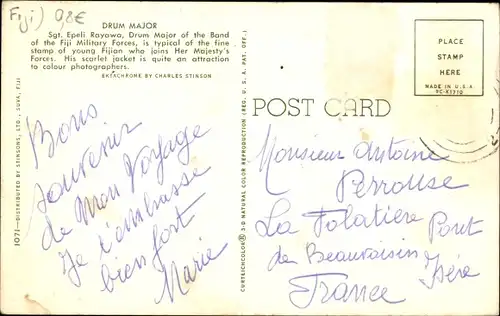 Fiji) 0,8€
DRUM MAJOR
Sgt. Epeli Rayawa, Drum Major of the Band
of the Fiji Military Forces, is typical of the fine
stamp of young Fijian who joins Her Majesty's
Forces. His scarlet jacket is quite an attraction
to colour photographers.
EKTACHROME BY CHARLES STINSON
1071—DISTRIBUTED BY STINSONS, LTD., SUVA, FIJI
Bons
souvenir
de Mon Voyage
Je t'embrasse
bien fort
Marie
CURTEICHCOLOR® 3-D NATURAL COLOR REPRODUCTION (REG. U. S. A. PAT. OFF.)
POST CARD
PLACE
STAMP
HERE
MADE IN U.S.A.
9C-K1310
Monsieur Antoine
Perrousse
La Folatière Pont
de Beauvoisin
Isère
France